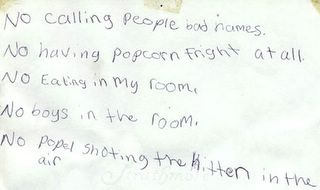 No calling people bad names.
No having popcorn fright at all.
No Eating in my room.
No boys in the room.
No popel shoting the kitten in the
air